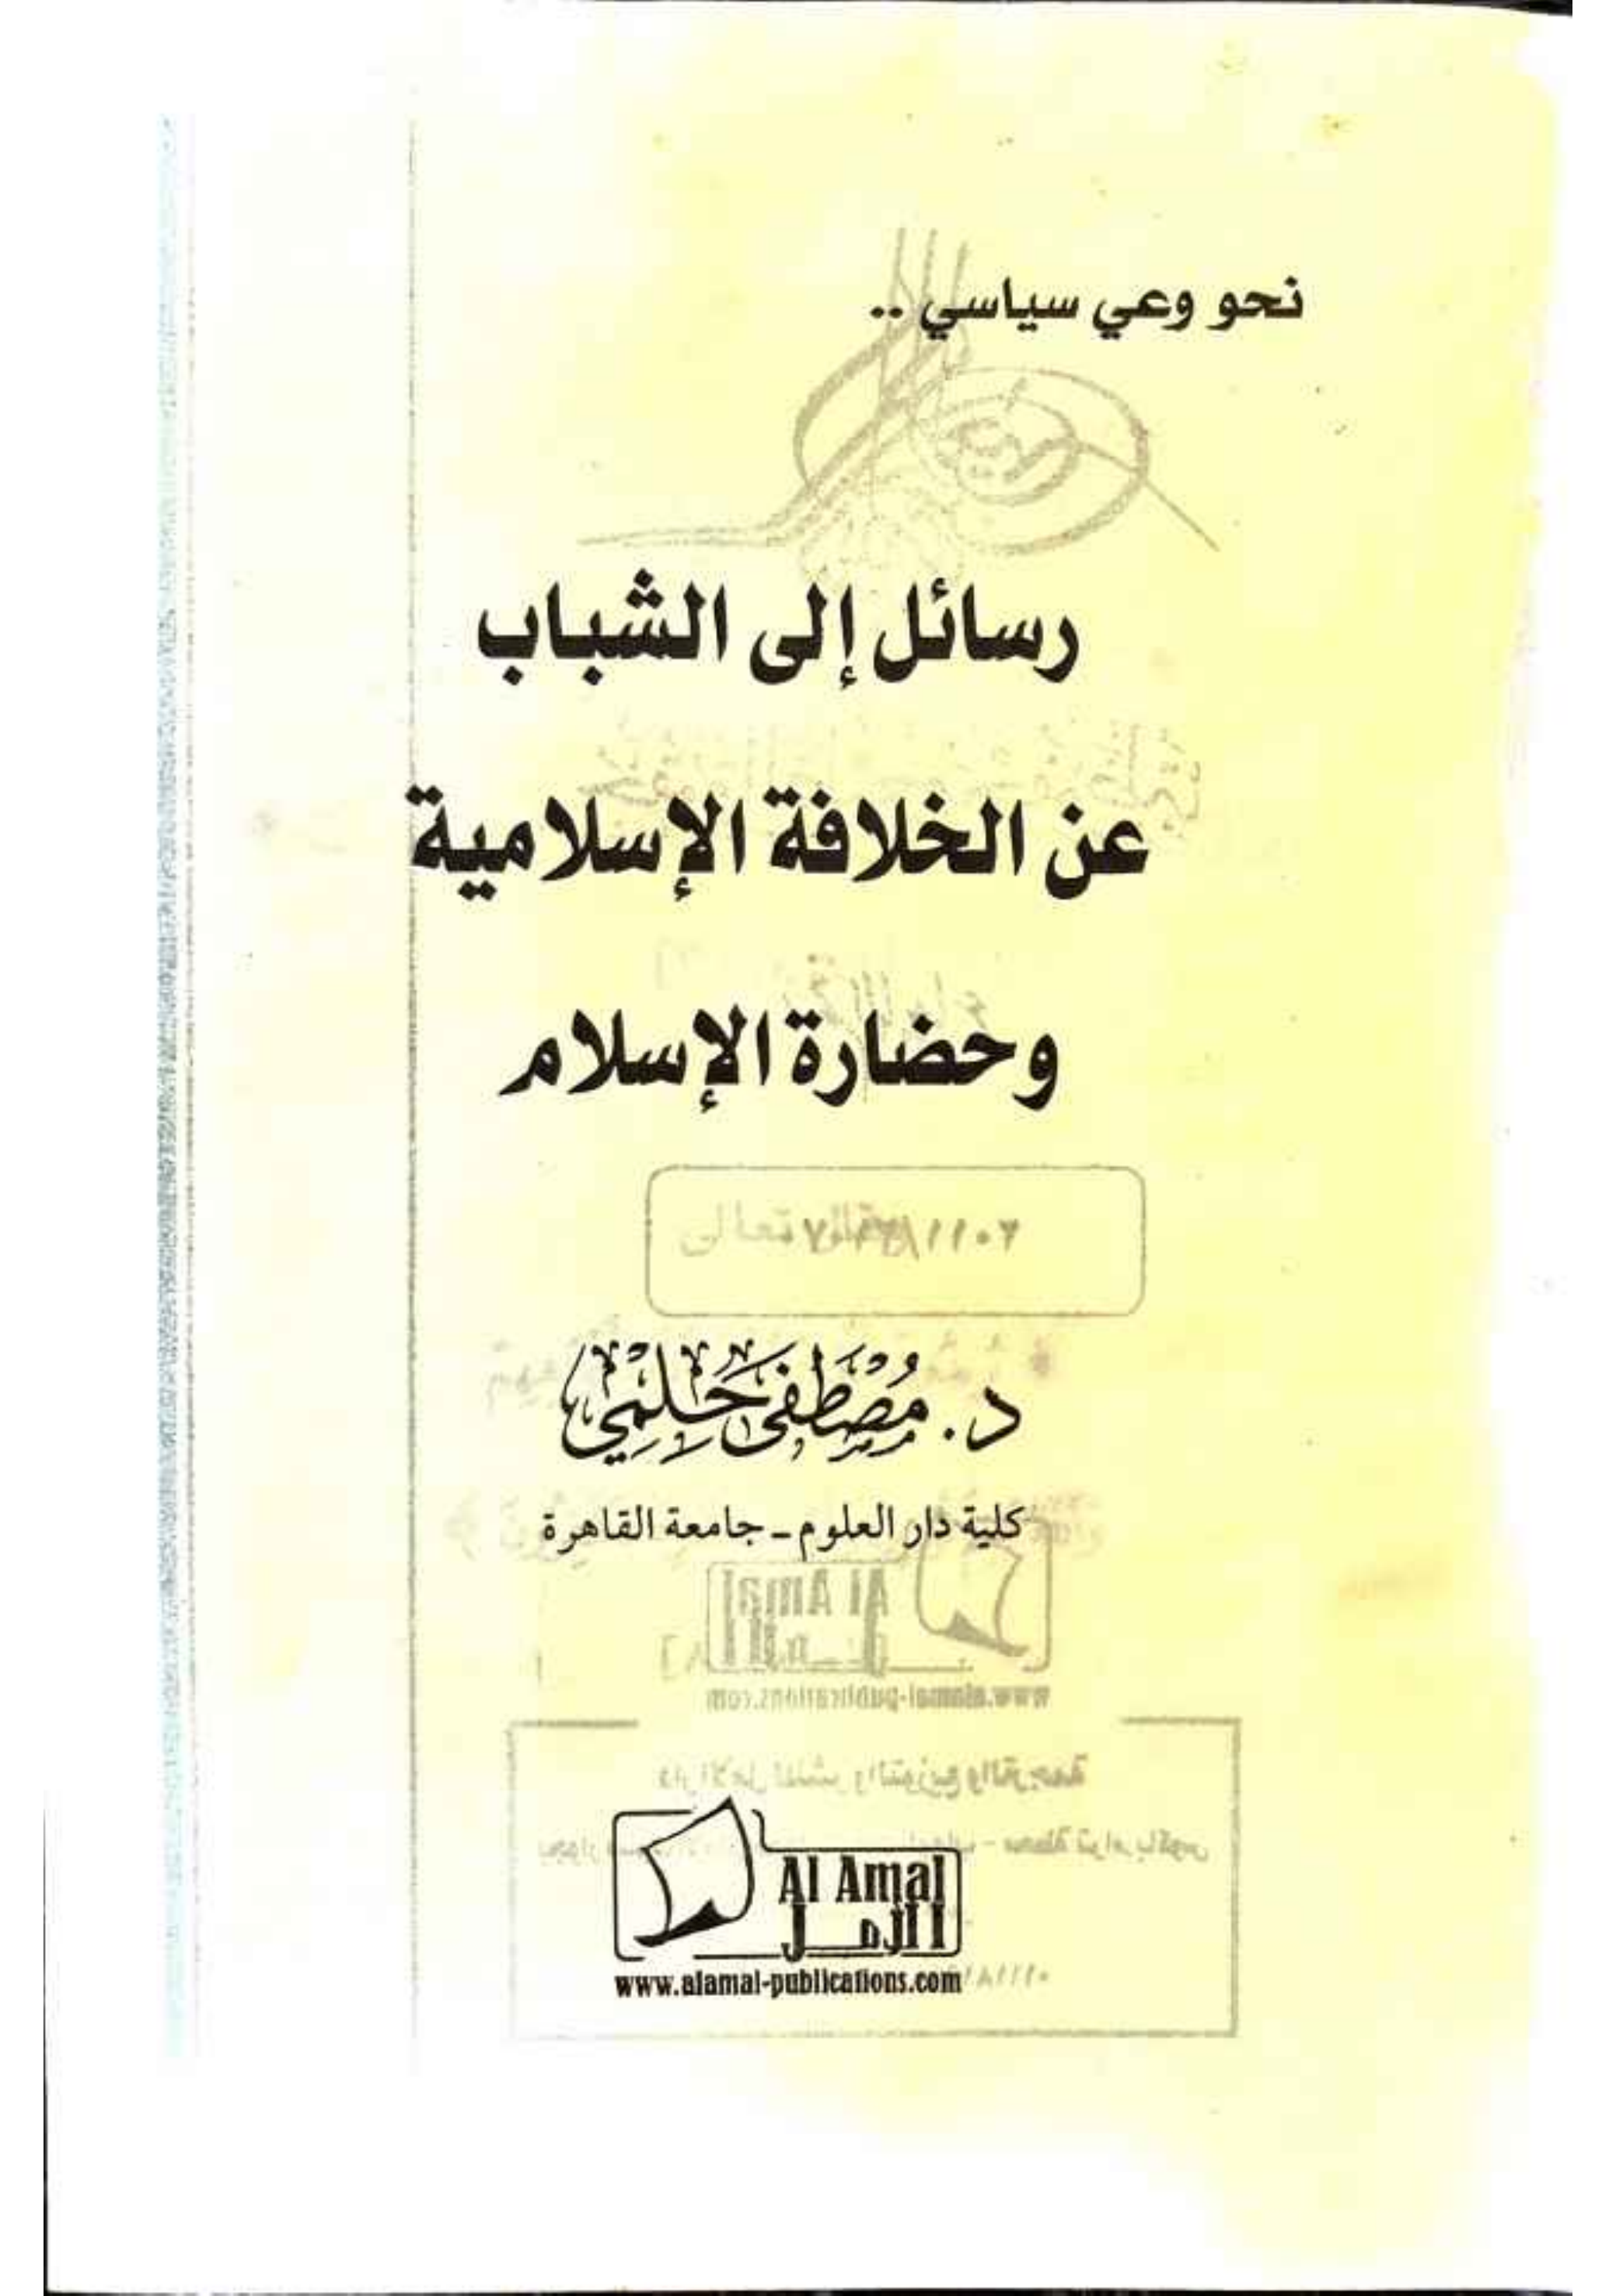 نحو وعي سياسي ..
رسائل إلى الشباب
عن الخلافة الإسلامية
وحضارة الإسلام
د. مُصْطَفى حِلْمِي
كلية دار العلوم ـ جامعة القاهرة
Al Amal
الأمل
www.alamal-publications.com